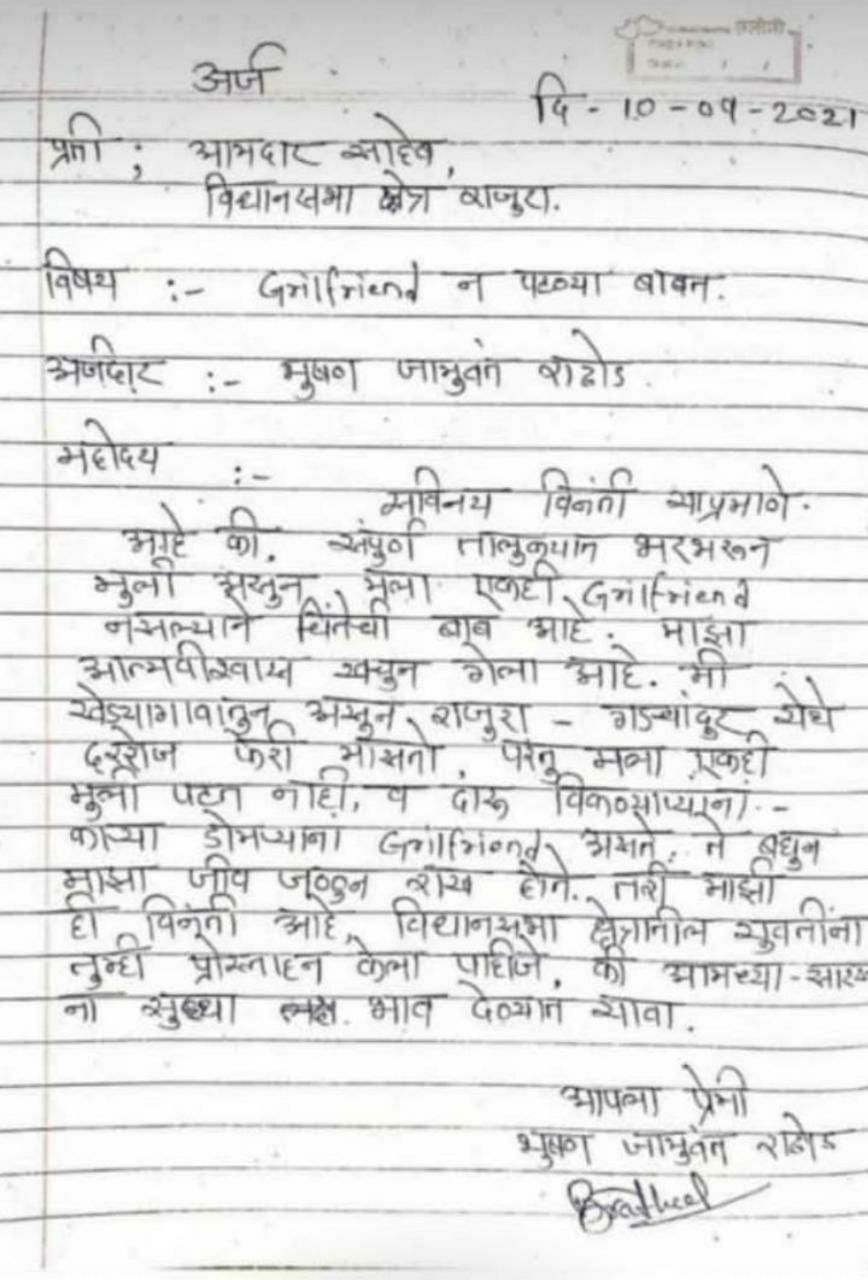 अर्ज
दि - 10-09-2021
प्रती ; आमदार साहेब,
विधानसभा क्षेत्र राजुरा.
विषय :- Grilfriend न पटण्या बाबत.
अर्जदार :- भुषण जामुवंत राठोड
महोदय :-
सविनय विनंती याप्रमाणे.
आहे की. संपुर्ण तालुक्यात भरभरून
मुली असुन मला एकही Grilfriend
नसल्याने चिंतेची बाब आहे. माझा
आत्मवीश्वास खचुन गेला आहे. मी
खेड्यागावातुन असुन राजुरा - गडचांदुर येथे
दररोज फेरी मारतो, परंतु मला एकही
मुली पटत नाही, व दारू विकण्याऱ्यांना -
काऱ्या डोमऱ्यांना Grilfriend असते. ते बघुन
माझा जीव जळुन राख होते. तरी माझी
ही विनंती आहे, विधानसभा क्षेत्रातील युवतींना
तुम्ही प्रोस्ताहन केला पाहीजे, की आमच्या-सारख्
ना सुध्दा भाव देण्यात यावा.
आपला प्रेमी
भुषण जामुवंत राठोड